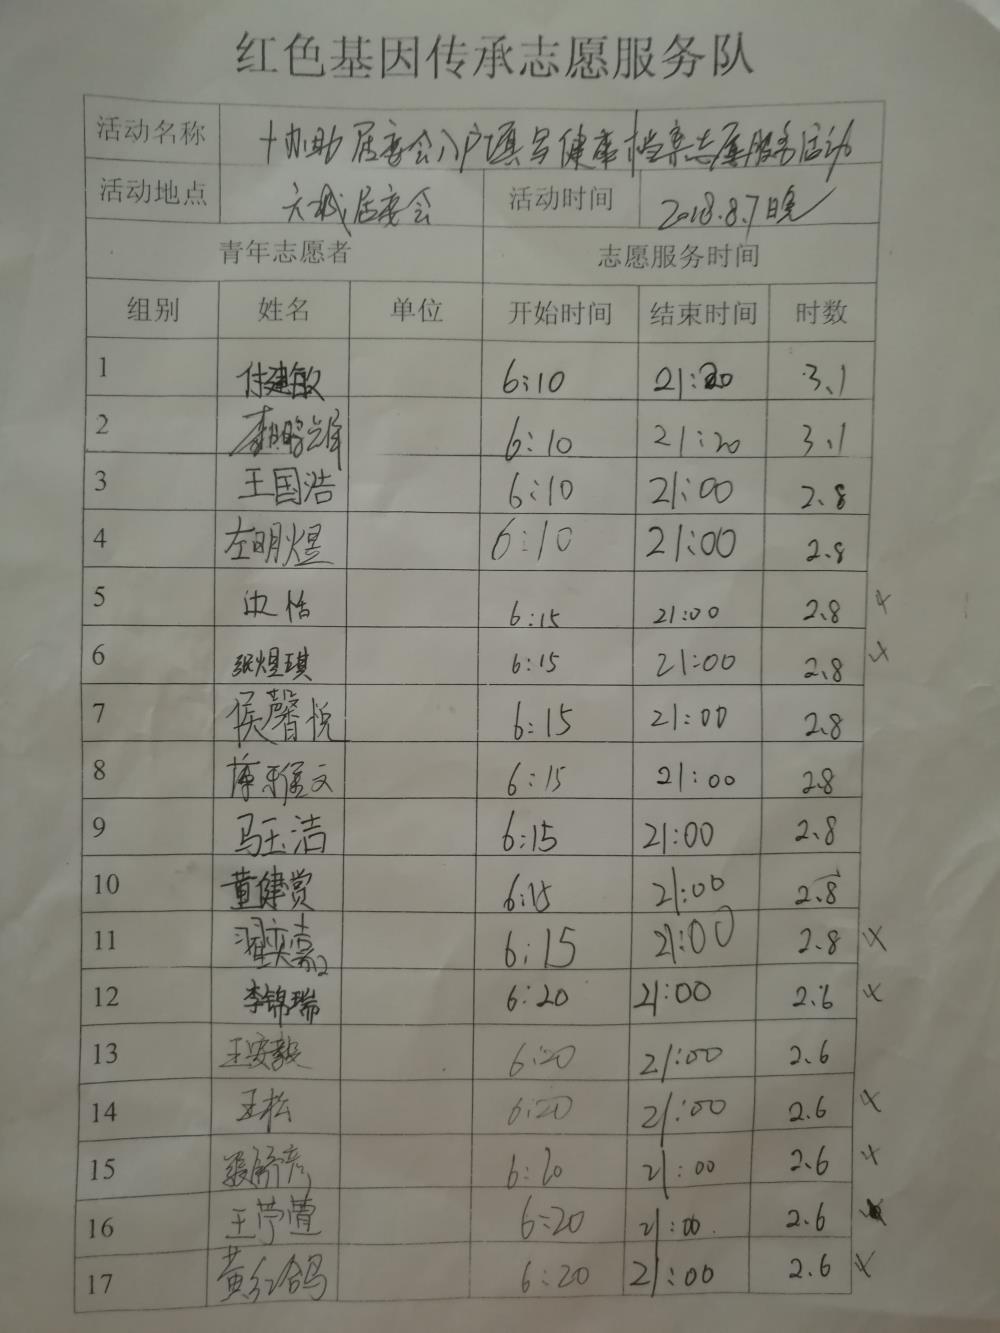 红色基因传承志愿服务队
活动名称 协助居委会入户填写健康档案志愿服务活动
活动地点 居委会 活动时间 2018.8.7晚
青年志愿者 志愿服务时间
组别 姓名 单位 开始时间 结束时间 时数
1 付建敏 6:10 21:20 3.1
2 6:10 21:20 3.1
3 王国浩 6:10 21:00 2.8
4 左明煜 6:10 21:00 2.8
5 6:15 21:00 2.8 x
6 张煜琪 6:15 21:00 2.8 x
7 侯馨悦 6:15 21:00 2.8
8 6:15 21:00 2.8
9 马玉洁 6:15 21:00 2.8
10 董健赏 6:15 21:00 2.8
11 6:15 21:00 2.8 x
12 李锦瑞 6:20 21:00 2.6 x
13 王安毅 6:20 21:00 2.6
14 王松 6:20 21:00 2.6 x
15 6:20 21:00 2.6 x
16 王苧萱 6:20 21:00 2.6
17 黄红鸽 6:20 21:00 2.6 x